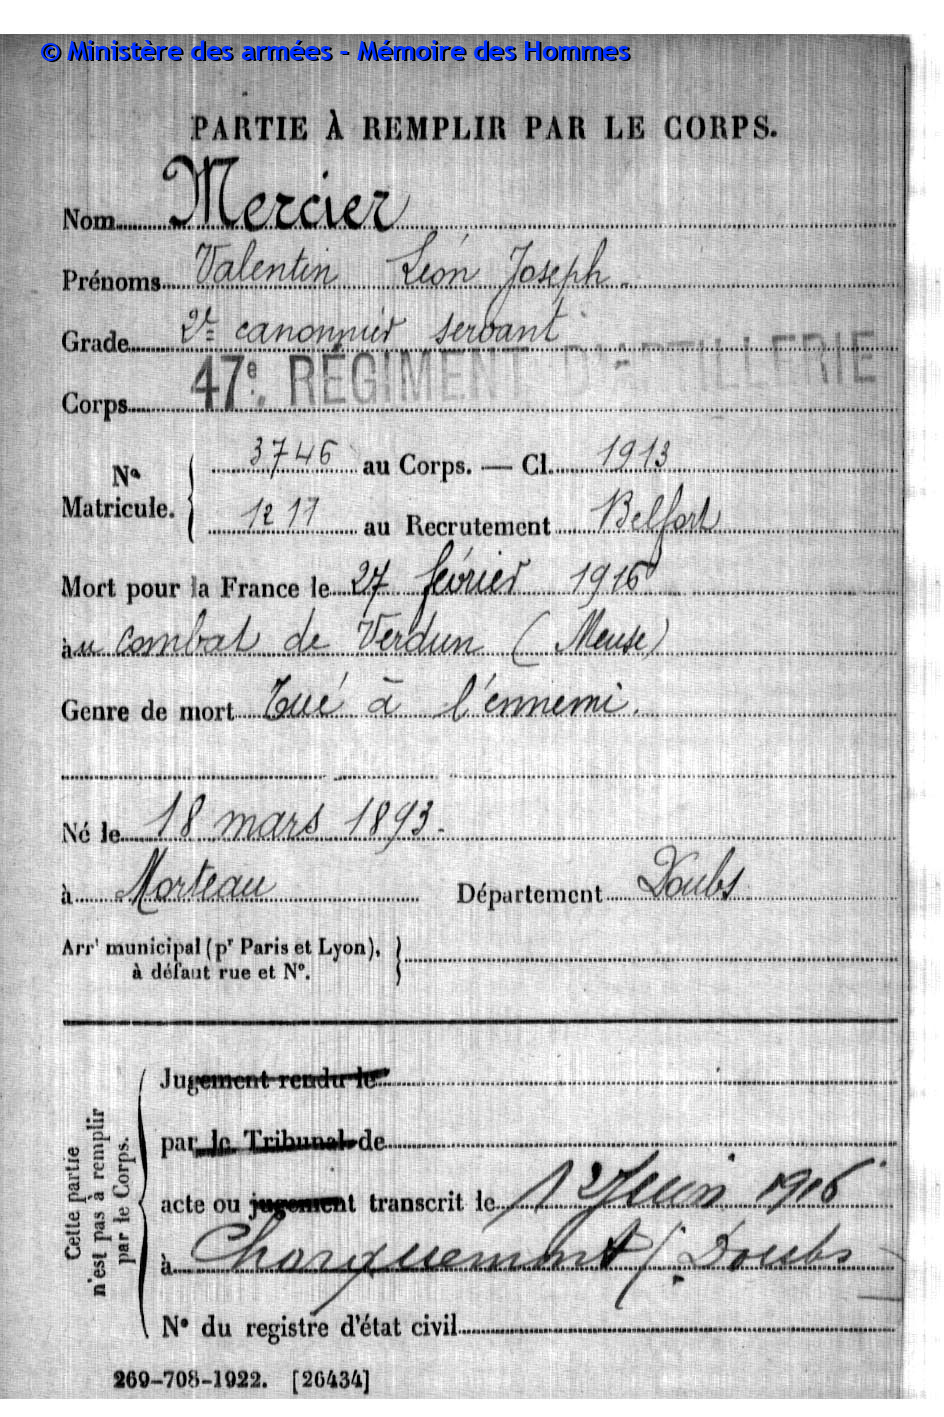 © Ministère des armées - Mémoire des Hommes
PARTIE À REMPLIR PAR LE CORPS.
Nom Mercier
Prénoms Valentin Léon Joseph.
Grade 2e canonnier servant
Corps 47e. RÉGIMENT D'ARTILLERIE
No Matricule. { 3746 au Corps. — Cl. 1913
1217 au Recrutement Belfort
Mort pour la France le 27 février 1916
àu combat de Verdun (Meuse)
Genre de mort Tué à l'ennemi.
Né le 18 mars 1893.
à Morteau Département Doubs
Arrt municipal (pr Paris et Lyon), }
à défaut rue et N°.
Cette partie
n'est pas à remplir
par le Corps.
Jugement rendu le
par le Tribunal de
acte ou jugement transcrit le 12 Juin 1916
à Charquemont (Doubs
N° du registre d'état civil
269-708-1922. [26434]